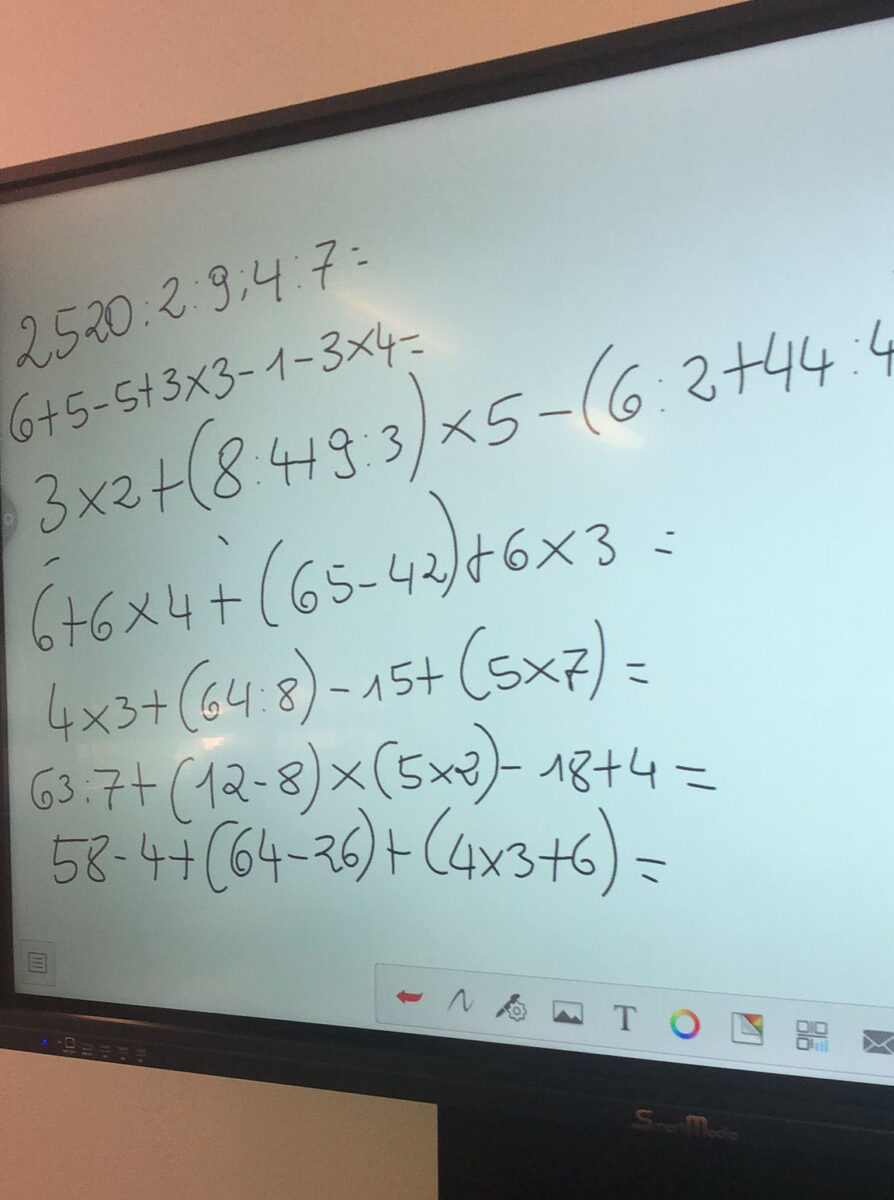 2520:2:9:4:7=
6+5-5+3×3-1-3×4=
3×2+(8:4+9:3)×5-(6:2+44:4
6+6×4+(65-42)+6×3 =
4×3+(64:8)-15+(5×7)=
63:7+(12-8)×(5×2)-18+4=
58-4+(64-26)+(4×3+6)=
T
SmartMedia